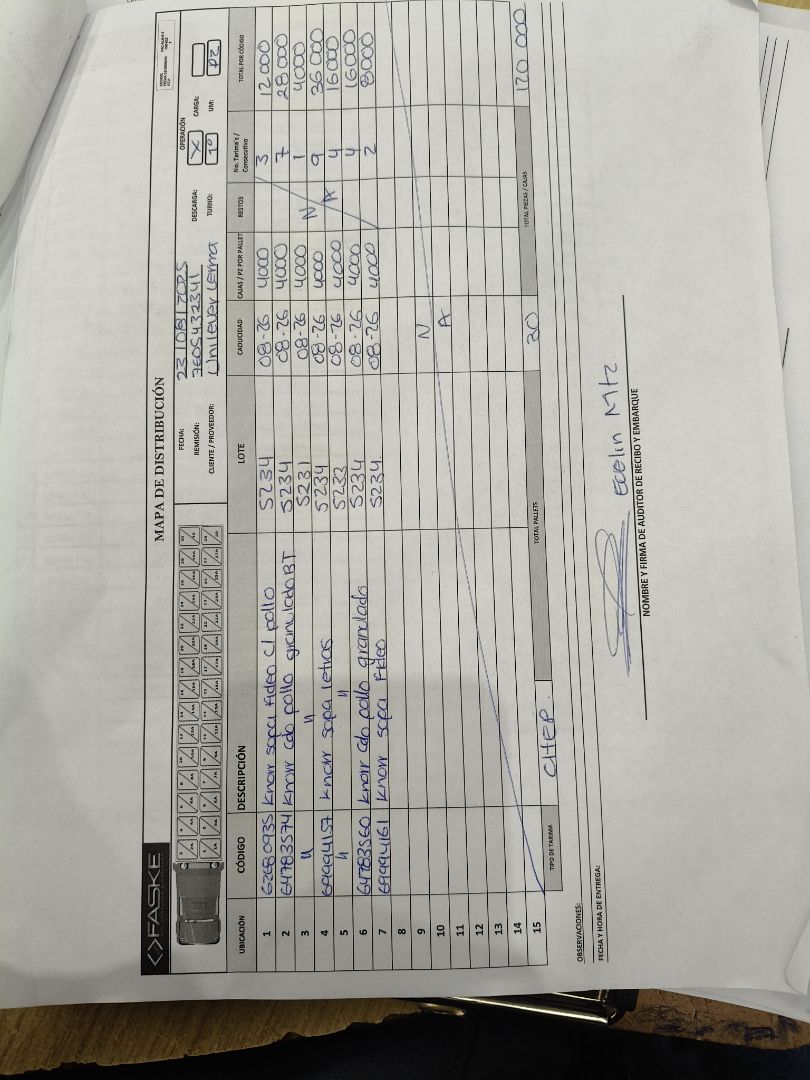 <>FASKE
MAPA DE DISTRIBUCIÓN
FECHA: 23/08/2025
REMISIÓN: 7605432341
CLIENTE / PROVEEDOR: Unilever Lerma
OPERACIÓN
DESCARGA: X CARGA:
TURNO: 1º UM: PZ
UBICACIÓN CÓDIGO DESCRIPCIÓN LOTE CADUCIDAD CAJAS / PZ POR PALLET RESTOS No. Tarima's / Consecutivo TOTAL POR CÓDIGO
1 62680935 Knorr sopa Fideo c/ pollo 5234 08-26 4000 3 12 000
2 64783574 Knorr cdo pollo granulado BT 5234 08-26 4000 7 28 000
3 " " 5231 08-26 4000 N 1 4000
4 69994157 Knorr sopa letras 5234 08-26 4000 A 9 36 000
5 " " 5233 08-26 4000 4 16 000
6 64783560 Knorr cdo pollo granulado 5234 08-26 4000 4 16 000
7 69994161 Knorr sopa Fideo 5234 08-26 4000 2 8000
8
9 N
10 A
11
12
13
14
15
TIPO DE TARIMA CHEP. TOTAL PALLETS 30 TOTAL PIEZAS / CAJAS 120 000
OBSERVACIONES:
FECHA Y HORA DE ENTREGA:
Evelin Mtz
NOMBRE Y FIRMA DE AUDITOR DE RECIBO Y EMBARQUE